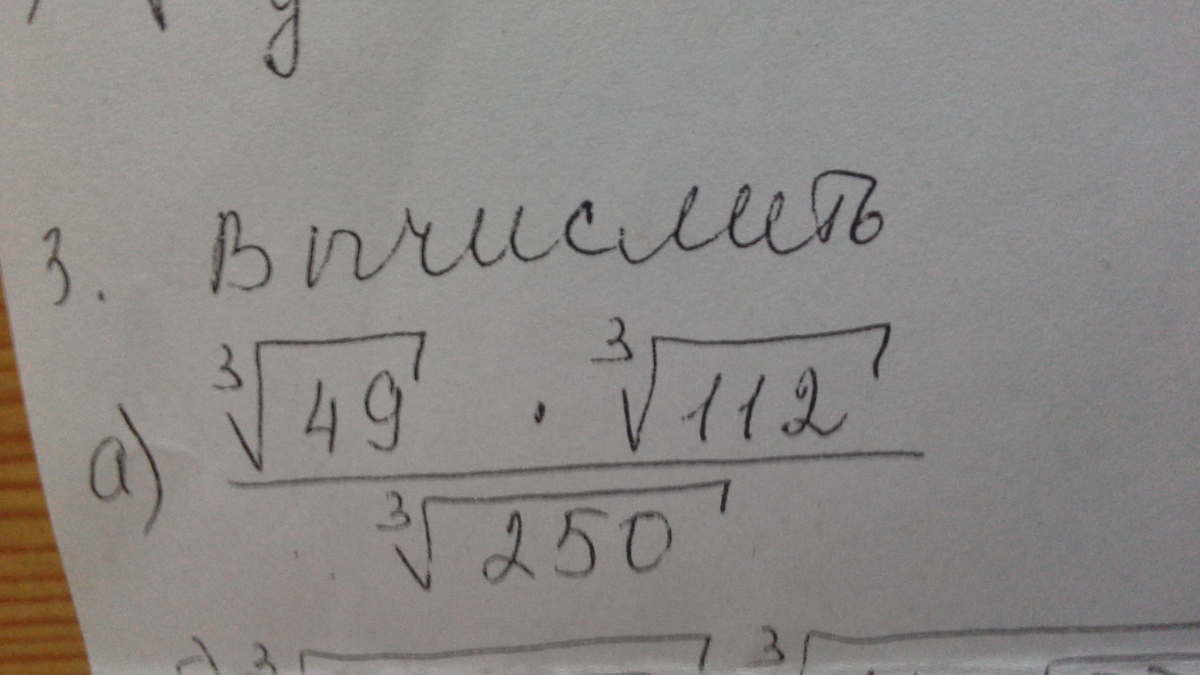 у
3. Вычислить
а) \frac{\sqrt[3]{49} \cdot \sqrt[3]{112}}{\sqrt[3]{250}}
3 3